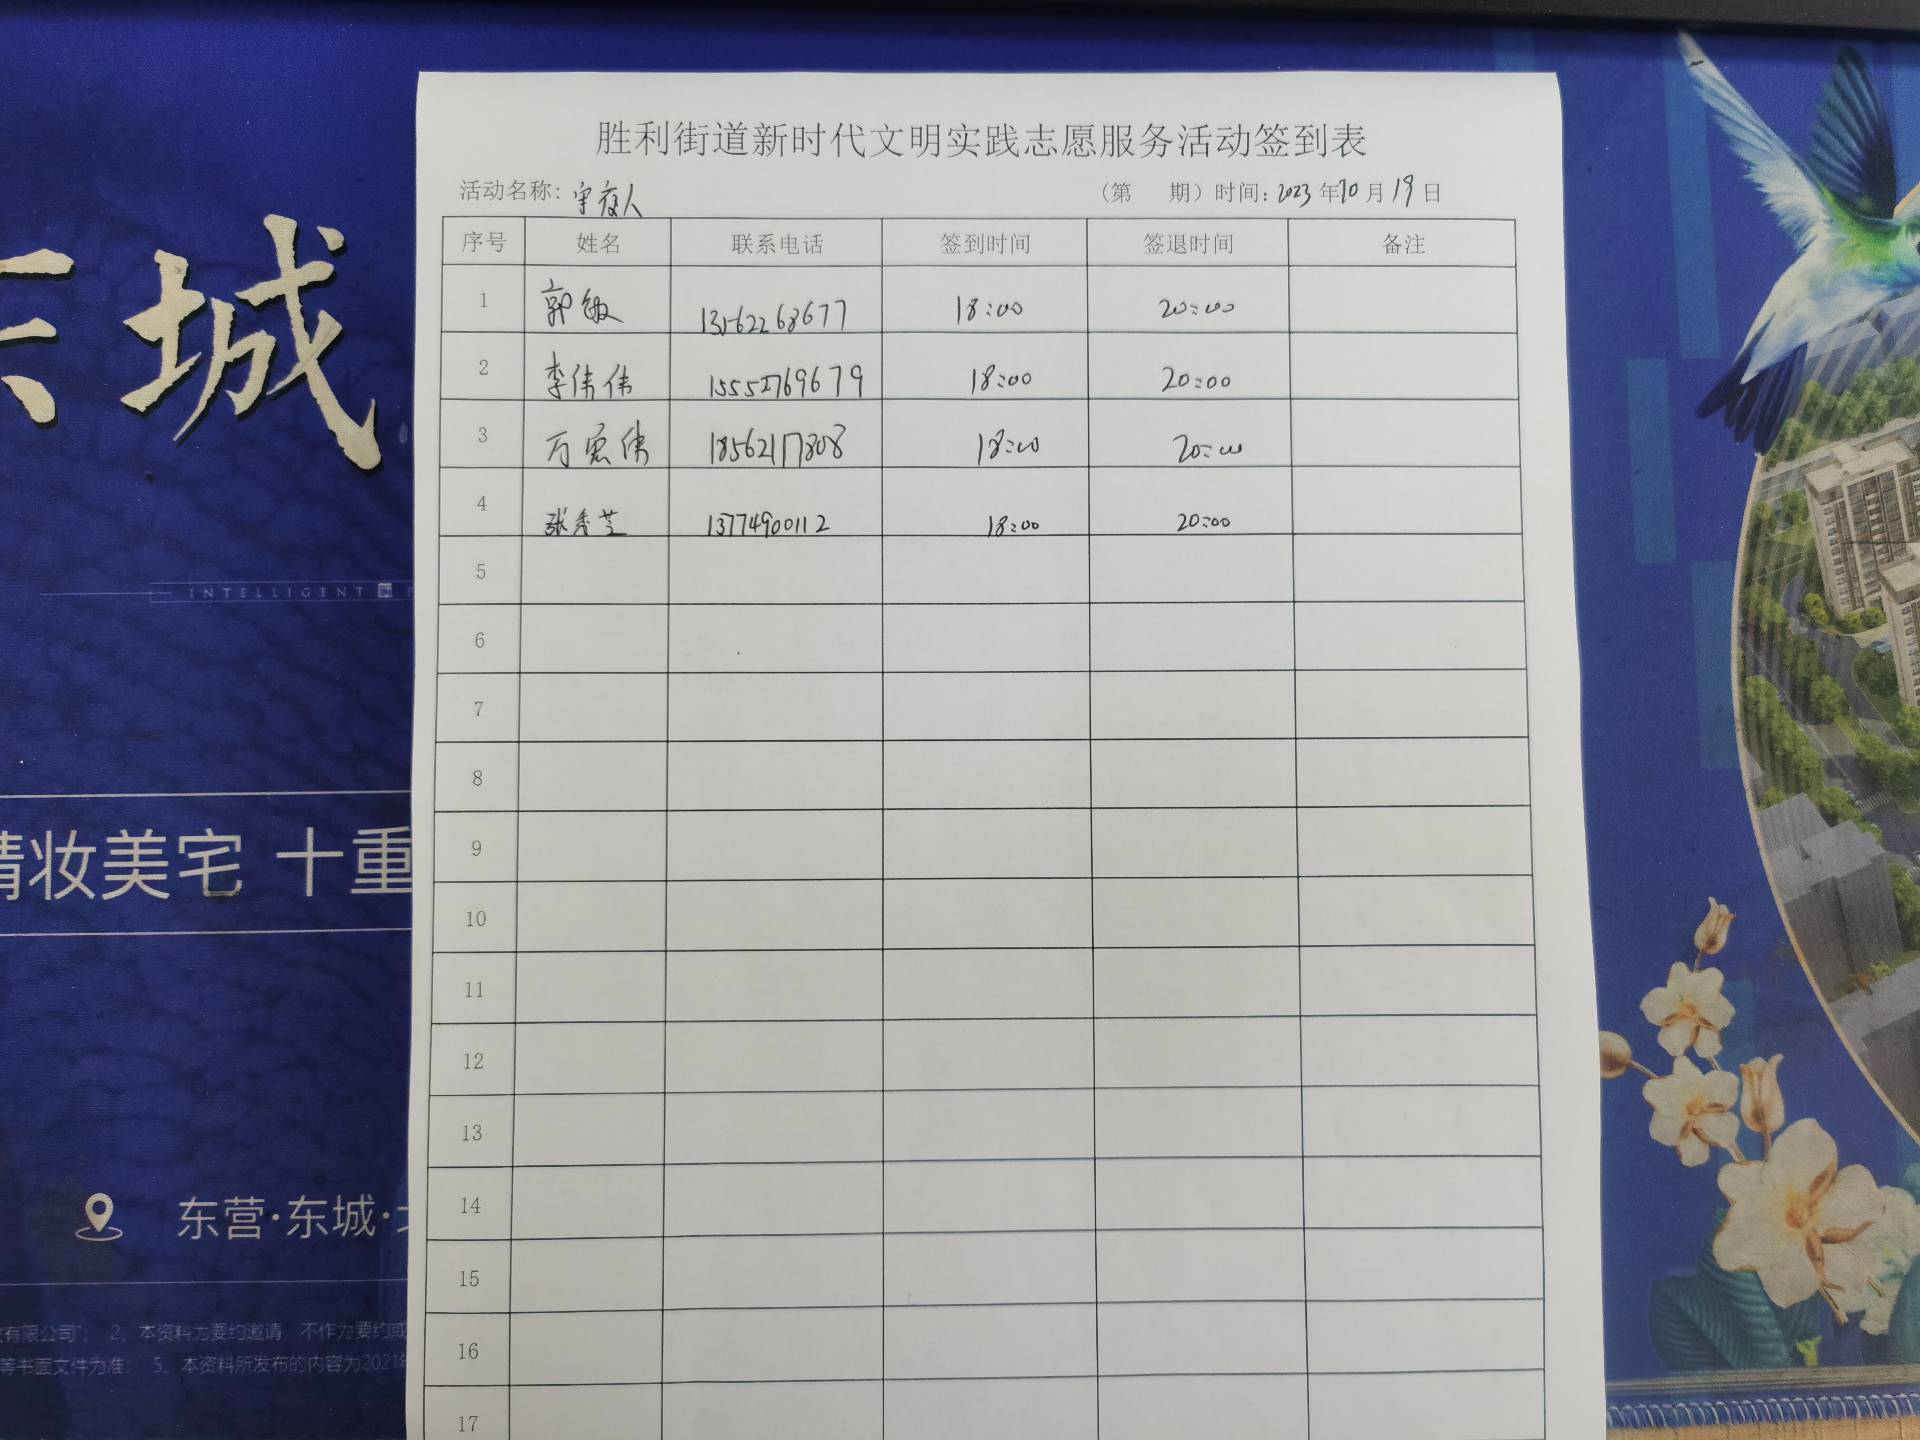 胜利街道新时代文明实践志愿服务活动签到表
活动名称：守夜人 （第 期）时间：2023年10月19日
序号 姓名 联系电话 签到时间 签退时间 备注
1 郭敏 13562268677 18:00 20:00
2 李伟伟 15552769679 18:00 20:00
3 万宏伟 18562117808 18:00 20:00
4 张秀芝 13774900112 18:00 20:00
5
6
7
8
9
10
11
12
13
14
15
16
17
东城
INTELLIGENT
精妆美宅 十重
东营·东城·
有限公司"； 2、本资料为要约邀请 不作为要约或
等书面文件为准； 5、本资料所发布的内容为2021年